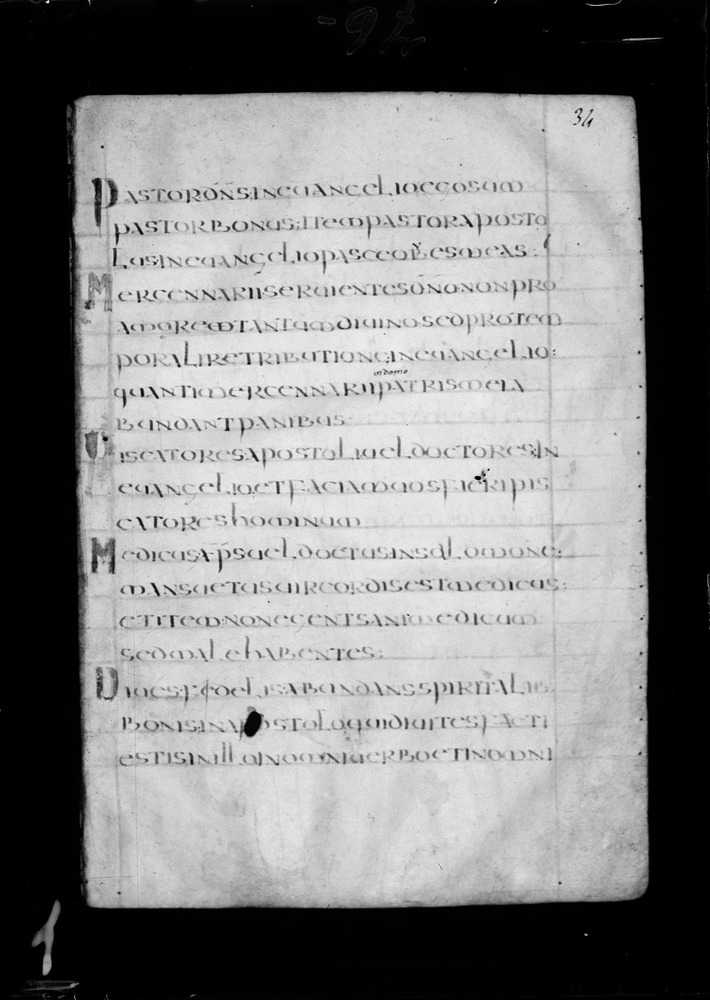 34
PASTOR DN̄S IN EUANGELIO EGO SUM
PASTOR BONUS; ITEM PASTOR APOSTO
LUS IN EUANGELIO PASCE OBES MEAS:
MERCENNARII SERUIENTES DN̄O NON PRO
AMORE TANTUM DIUINO SED PRO TEM
PORALI RETRIBUTIONE; IN EUANGELIO:
in domo
QUANTI MERCENNARII PATRIS MEI A
BUNDANT PANIBUS
PISCATORES APOSTOLI UEL DOCTORES; IN
EUANGELIO ET FACIAM UOS FIERI PIS
CATORES HOMINUM
MEDICUS APS UEL DOCTUS IN SALOMONE:
MANSUETUS UIR CORDIS EST MEDICUS:
ET ITEM NON EGENT SANI MEDICUM
SED MALE HABENTES:
DIUES FIDELIS ABUNDANS SPIRITALIB
BONIS IN APOSTOLO QUI DIUITES FACTI
ESTIS IN ILLO IN OMNI UERBO ET IN OMNI